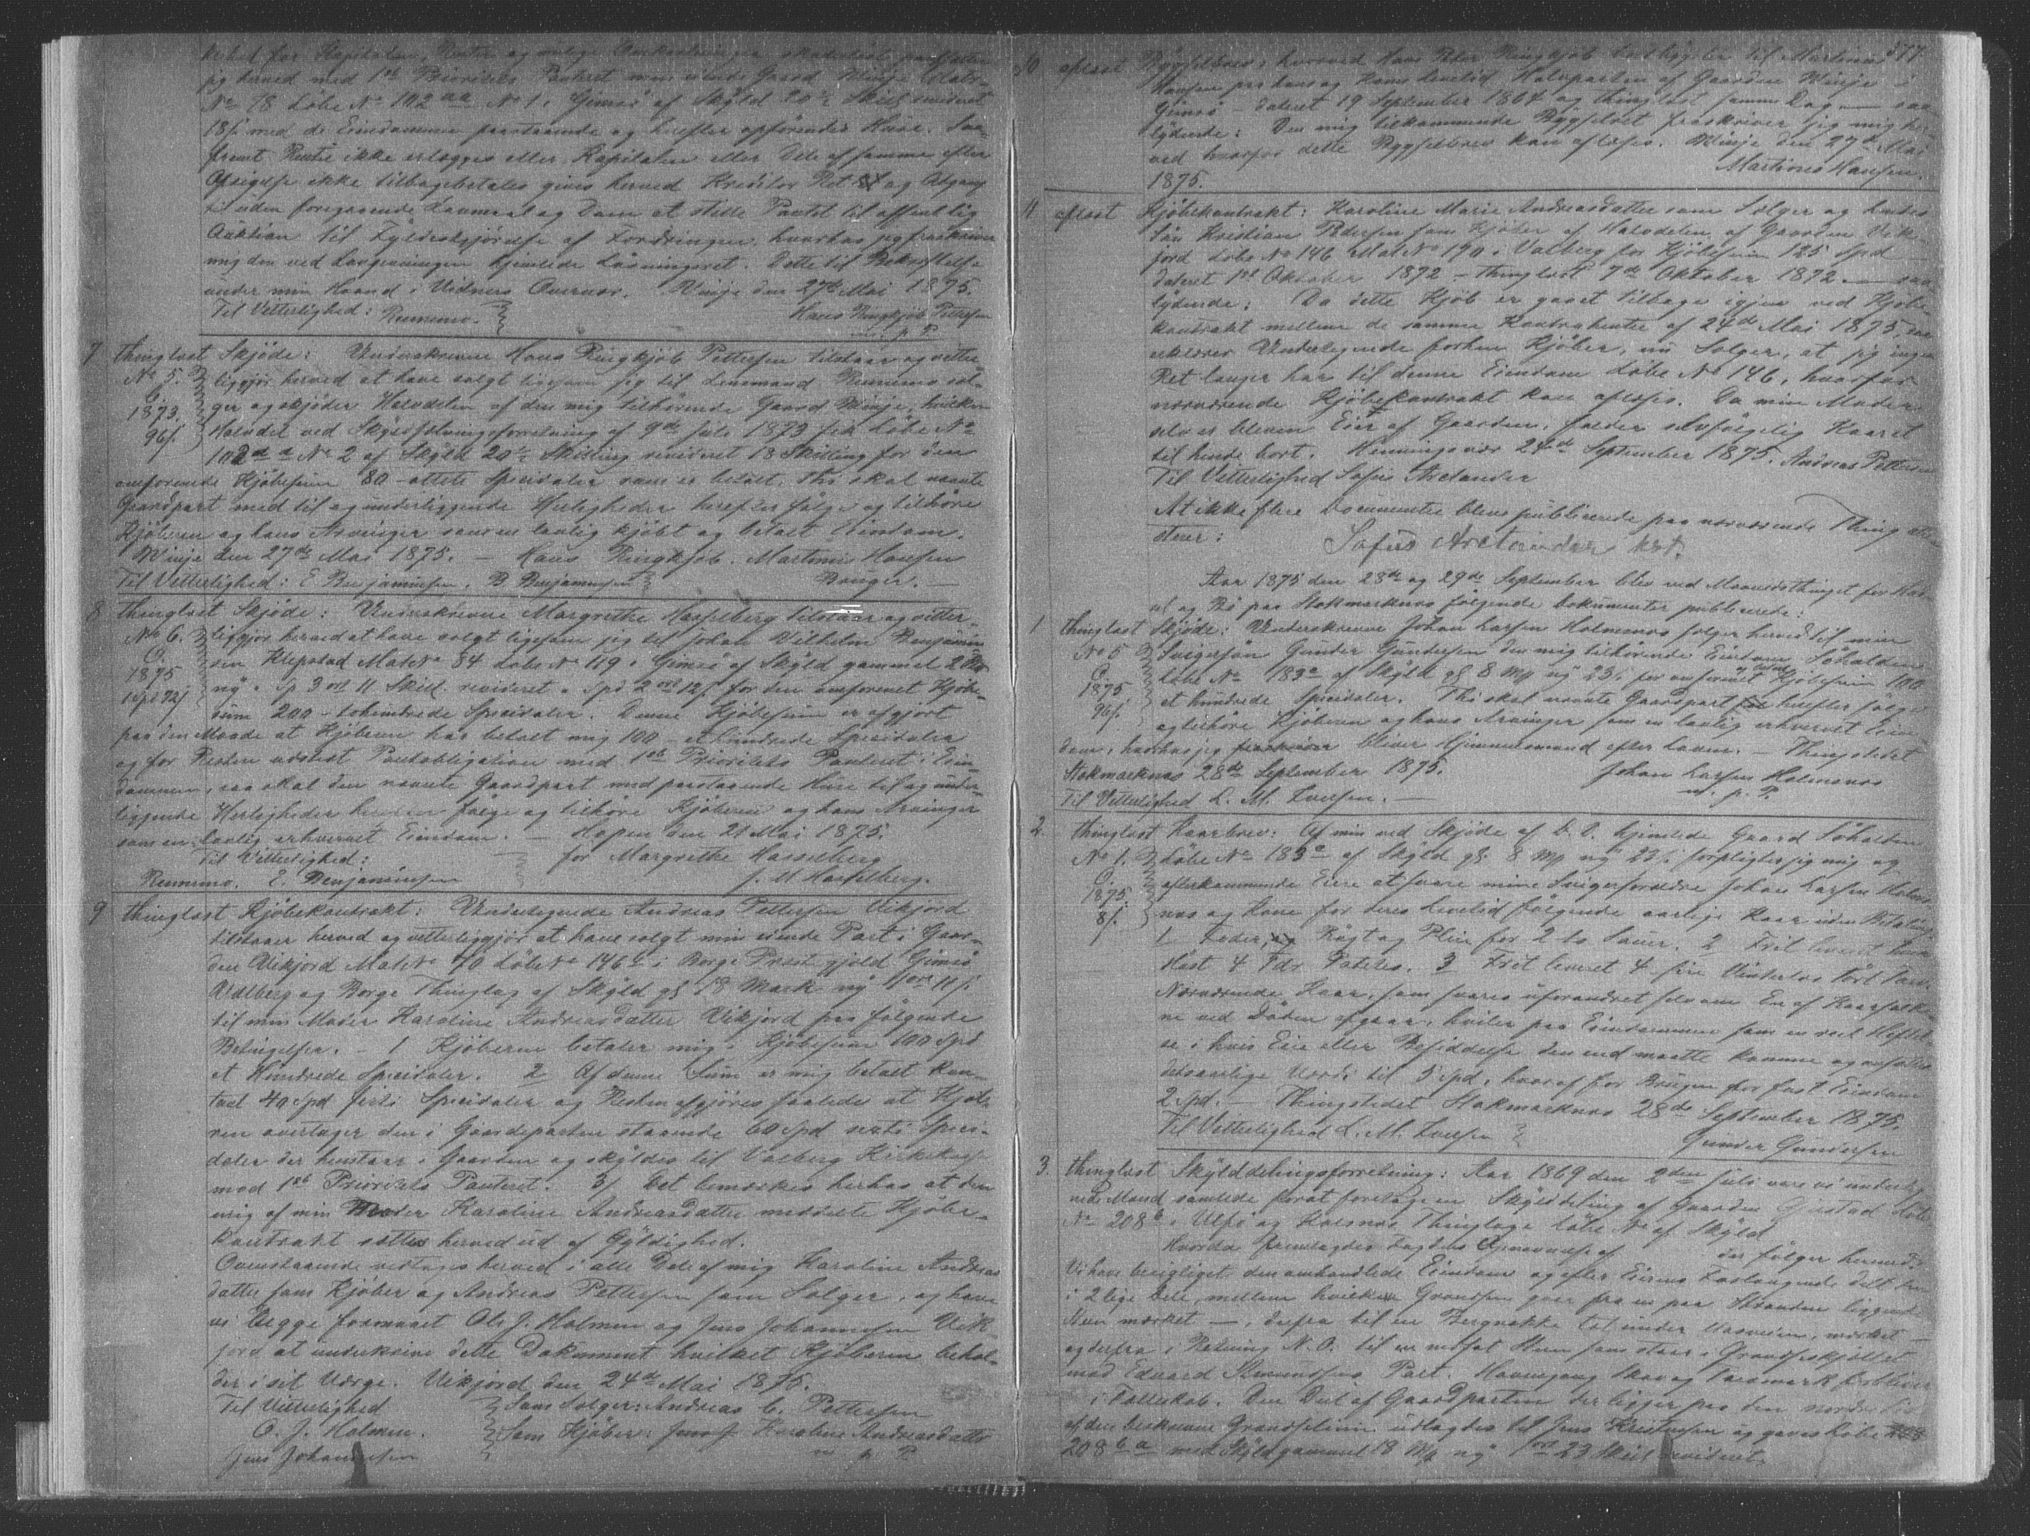 jeg herved med 1ste Prioritets Panteret min eiende Gaard Winje Matr-
No 78 Løbe No 102 aa No 1 i Gimsø af Skyld 20½ Skill revideret
18 s. med de Eiendommen paastaaende og herefter opførendes Huse. Saa-
fremt Rente ikke erlægges eller Kapitalen eller Dele af samme efter
Opsigelse ikke tilbagebetales gives herved Kreditor Ret til og Adgang
til uden foregaaende Lovmaal og Dom at stille Pantet til offentlig
Auktion til Fyldestgjørelse af Fordringen, hvorhos jeg fraskriver
mig den ved Lovgivningen hjemlede Løsningsret. Dette til Bekræftelse
under min Haand i Vidners Overvær. Winje den 27de Mai 1875.
Til Vetterlighed: Rummo. Hans Ringkjøb Pettersen
m. p. P.
7 thinglæst Skjøde: Underskrevne Hans Ringkjøb Pettersen tilstaar og vitter-
No 5. liggjør herved at have solgt ligesom jeg til Lensmand Rummo sæl-
O. ger og skjøder Halvdelen af den mig tilhørende Gaard Winje, hvilken
1873. Halvdel ved Skyldfølningsforretning af 9de Juli 1873 fik Løbe No
96 s. 102 a a No 2 af Skyld 20½ Skilling revideret 18 Skilling for den
omforenede Kjøbesum 80 - otteti Speciedaler som er betalt. Thi skal nævnte
Gaardpart med til og underliggende Herligheder herefter følge og tilhøre
Kjøberen og hans Arvinger som en lovlig kjøbt og betalt Eiendom.
Winje den 27de Mai 1875. - Hans Ringkjøb. Martinus Hansen
Til Vetterlighed: E Benjaminsen. B Benjaminsen Bonger.
8 thinglæst Skjøde: Underskrevne Margrethe Hasselberg tilstaar og vitter-
No 6. liggjør herved at have solgt ligesom jeg til Johan Vilhelm Benjamin
O. sen Klepstad Matr No 84 Løbe No 119 i Gimsø af Skyld gammel 2
1875 ny " Sp 3 ort 11 Skill. revideret " Spd 2 ort 12 s. for den omforenet Kjøbe-
1 Spd 72 s sum 200 - tohundrede Speciedaler. Denne Kjøbesum er afgjort
paa den Maade at Kjøberen har betalt mig 100 - et hundrede Speciedaler
og for Resten udstedt Pantobligation med 1ste Prioritets Panteret i Eien-
dommen, saa skal den nævnte Gaardpart med paastaaende Huse til og under-
liggende Herligheder herefter følge og tilhøre Kjøberen og hans Arvinger
som en lovlig erhvervet Eiendom. - Hopen den 21 Mai 1875.
Til Vetterlighed: for Margrethe Hasselberg
Rummo. E. Benjaminsen J. M Hasselberg.
9 thinglæst Kjøbekontrakt: Undertegnede Andreas Pettersen Vikjord
tilstaaer herved og vetterliggjør at have solgt min eiende Part i Gaar-
den Vikjord Matr No 70 Løbe No 146 i Borge Præstegjeld Gimsø
Valberg og Borge Thinglag af Skyld gl 18 Mark ny 1 ort 11 s
til min Moder Karoline Andreasdatter Vikjord paa følgende
Betingelser. - 1 Kjøberen betaler mig i Kjøbesum 100 Spd
et Hundrede Speciedaler. 2 Af denne Sum er mig betalt Kon-
tant 40 Spd firti Speciedaler og Resten afgjøres saalede at Kjøbe-
ren overtager den i Gaardeparten staaende 60 Spd sexti Specie-
daler der henstaar i Gaarden og skyldes til Valberg Kirkekasse
mod 1ste Prioritets Panteret. 3/ Det bemærkes herhos at den
mig af min Moder Karoline Andreasdatter meddelte Kjøbe-
kontrakt sættes herved ud af Gyldighed.
Ovenstaaende vedtages herved i alle Dele af mig Karoline Andreas
datter som Kjøber og Andreas Pettersen som Sælger, og have
vi begge formaaet Ole J. Holmen og Jens Johannesen Vik-
jord at underskrive dette Dokument hvilket Kjøberen behol-
der i sit Værge. Vikjord den 24de Mai 1875.
Til Vetterlighed Som Sælger: Andreas C. Pettersen
O. J. Holmen. Som Kjøber: Karoline Andreasdatter
Jens Johannesen m p P.
377.
10 aflæst Bygselbrev: hvorved Hans Peter Ringkjøb bortbygsler til Martinus
Hansen paa hans og Kones Levetid Halvparten af Gaarden Winje i
Gimsø - dateret 19 September 1864 og thinglæst samme Dag - saa-
lydende: Den mig tilkommende Bygselret fraskriver jeg mig her-
ved hvorfor dette Bygselbrev kan aflæses. Winje den 27de Mai
1875. Martinus Hansen.
11 aflæst Kjøbekontrakt: Karoline Marie Andreasdatter som Sælger og hendes
Søn Kristian Pedersen som Kjøber af Halvdelen af Gaarden Vik-
jord Løbe No 146 Mat No 190 i Valberg for Kjøbesum 125 Spd
dateret 1ste Oktober 1872 - thinglæst 7de Oktober 1872 - saa
lydende: Da dette Kjøb er gaaet tilbage igjen ved Kjøbe-
kontrakt mellem de samme Kontrahenter af 24de Mai 1875, saa
erklærer Undertegnede forhen Kjøber, nu Sælger, at jeg ingen
Ret længer har til denne Eiendom Løbe No 146, hvorfor
nærværende Kjøbekontrakt kan aflæses. Da min Moder
selv er bleven Eier af Gaarden, falder selvfølgelig Kaaret
til hende bort. Henningsvær 24de September 1875. Andreas Pettersen
Til Vetterlighed Sofus Arctander
At ikke flere Documenter bleve publicerede paa nærværende Thing
sterer: Sofus Arctander kst.
Aar 1875 den 28de og 29de September blev ved Maanedsthinget for Had-
sel og Bø paa Stokmarknæs følgende Dokumenter publicerede:
1 thinglæst Skjøde: Underskrevne Johan Larsen Holmsnæs sælger herved til min
No 5 Svigersøn Gunder Gundersen den mig tilhørende Eiendom Søholden
O. Løbe No 183a af Skyld gl 8 Mrk ny 23 s. for omforenet og betalt Kjøbesum 100
1875 et hundrede Speciedaler. Thi skal nævnte Gaardpart herefter følge
96 s. og tilhøre Kjøberen og hans Arvinger som en lovlig erhvervet Eien-
dom, hvorhos jeg bliver Hjemmelsmand efter Loven. - Thingstedet
Stokmarknæs 28de September 1875. Johan Larsen Holmsnæs
Til Vetterlighed L. M. Iversen. m. p. P.
2. thinglæst Kaarbrev: Af min ved Skjøde af D. D. hjemlede Gaard Søholden
No 1. Løbe No 183a af Skyld gl. 8 Mrk ny 23 s. forpligter jeg mig og
O. efterkommende Eiere at svare mine Svigerforældre Johan Larsen Holms-
1875. næs og Kone for deres Levetid følgende aarlige Kaar uden Betaling:
8 s. 1 Foder, Røgt og Pleie for 2 to Sauer. 2 Frit leveret hver
Høst 4 Tdr Poteter. 3 Frit leveret 4 fire Vinterlæs tørt
Nærværende Kaar, som svares uforandret selv om En af Kaarfolke-
ne ved Døden afgaar, hviler paa Eiendommen som en ved Heftel-
se i hvis Eie eller Besiddelse den end maatte komme og ansættes
Værdi til 5 Spd, hvoraf for Brugen for fast Eiendom
2 Spd. - Thingstedet Stokmarknæs 28de September 1875.
Til Vetterlighed L. M. Iversen Gunder Gundersen
3. thinglæst Skylddelingsforretning: Aar 1869 den 2den Juli vare vi underteg-
nede Mænd samlede forat foretage en Skylddeling af Gaarden Løbe
No 208b i Ulfø og Thinglag Løbe No af Skyld
Hvorda fremlagdes Fogdens Opnævnelse af der følger hermed.
Vi have besigtiget den omhandlede Eiendom og efter Eierens Forlangende delt den
i 2 lige Dele, mellem hvilke Grændsen gaar fra en paa Stranden liggende
Sten mærket -, derfra til en Bergnakke tæt under mærket -
og derfra i Retning N.O. til en nedsat Sten som staar i Grændseskjellet
med Edvard Part. Havnegang Skov og Torvmark forbliver
i Fælleskab. Den Del af Gaardparten der ligger paa den nordre Side
af den beskrevne Grændselinie udlagdes til Jens Kristensen og gaves Løbe
208 b a med Skyld gammel 18 Mrk ny " 1 ort 23 Skill revideret.